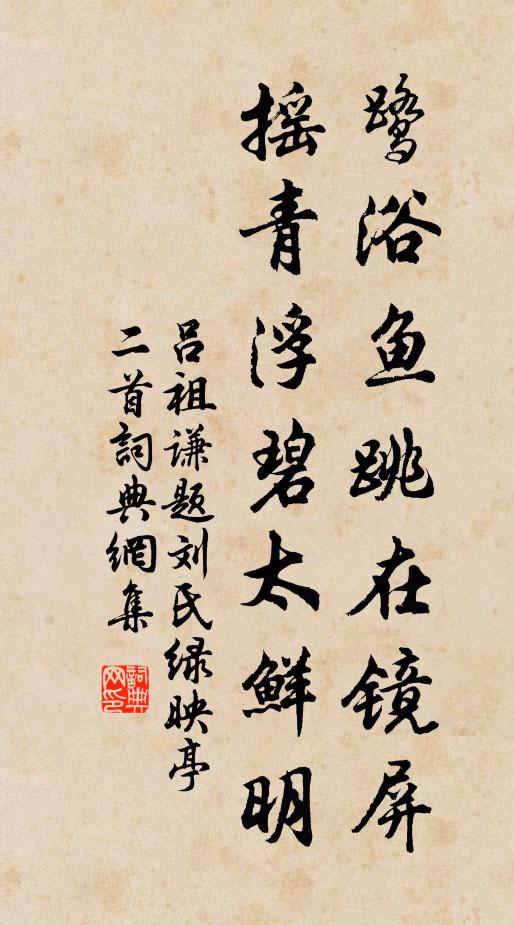 鹭浴鱼跳在镜屏
摇青浮碧太鲜明
吕祖谦题刘氏绿映亭
二首詞典網集
詞典
网印